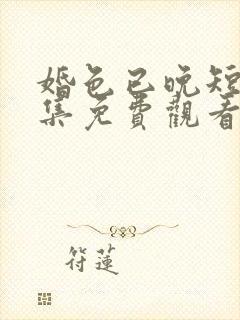 婚色已晚短
集免費觀看
符蓮